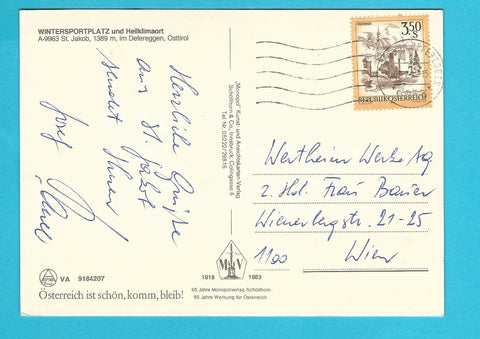 WINTERSPORTPLATZ und Heilklimaort
A-9963 St. Jakob, 1389 m, im Defereggen, Osttirol
Herzliche Grüße
aus St. Jakob
sendet Ihnen
Josef
VA 9184207
Österreich ist schön, komm, bleib!
„Monopol" Kunst- und Ansichtskarten-Verlag
Schöllhorn & Co., Innsbruck, Colingasse 6
Tel. Nr. 05222/29816
M V
1918 1983
65 Jahre Monopolverlag Schöllhorn
65 Jahre Werbung für Österreich
3.50
S
REPUBLIK ÖSTERREICH
Wertheim Werke AG
z. Hd. Frau Bauer
Wienerbergstr. 21-25
1100 Wien